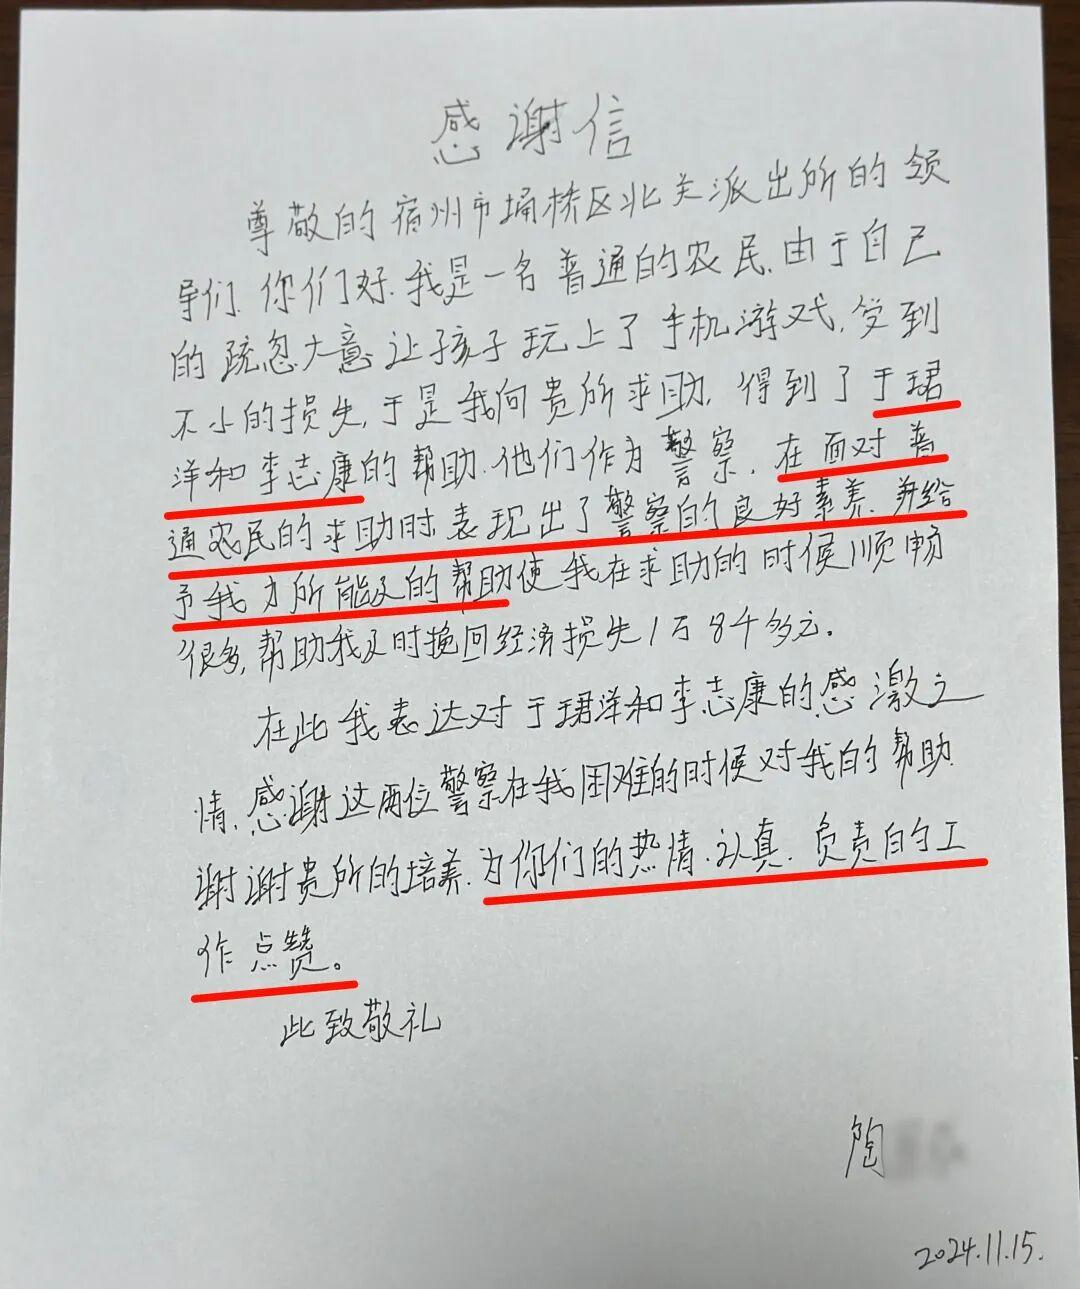 感谢信
尊敬的宿州市埇桥区北关派出所的领
导们.你们好.我是一名普通的农民.由于自己
的疏忽大意让孩子玩上了手机游戏.受到
不小的损失,于是我向贵所求助.得到了于珺
洋和李志康的帮助.他们作为警察.在面对普
通农民的求助时表现出了警察的良好素养.并给
予我力所能及的帮助使我在求助的时候顺畅
很多,帮助我及时挽回经济损失1万8千多元.
在此我表达对于珺洋和李志康的感激之
情.感谢这两位警察在我困难的时候对我的帮助.
谢谢贵所的培养.为你们的热情.认真.负责的工
作点赞。
此致敬礼
陶
2024.11.15.